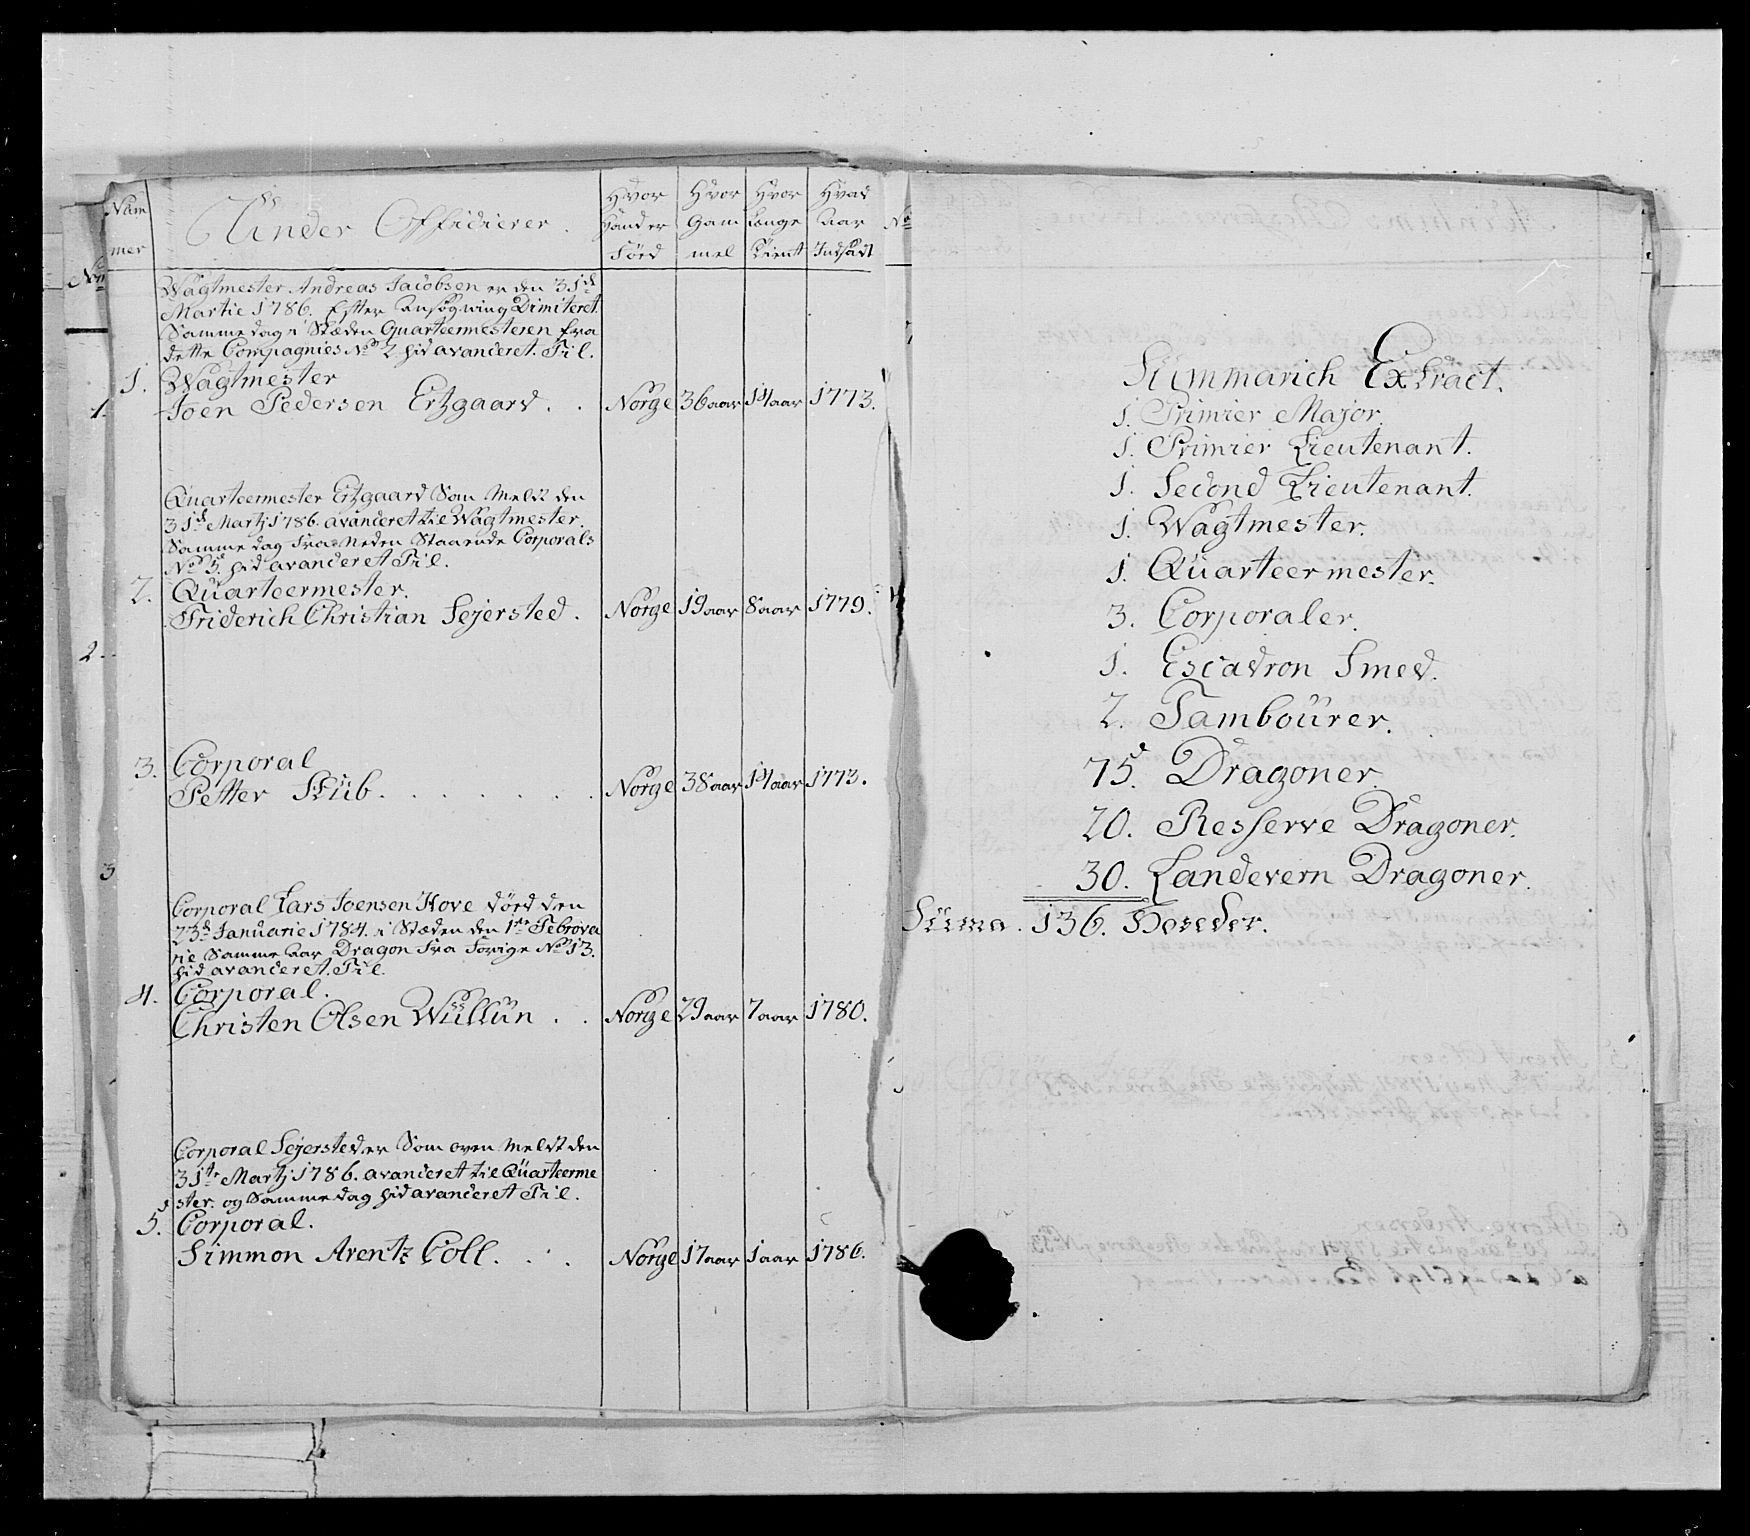 Num
mer
Under Officierer.
Hvor
Hand er
Förd
Hvor
Gam
mel
Hvor
Længe
Tient
Hvad
Aar
Indsadt
No
Wagtmester Andreas Jacobsen er den 31de
Martie 1786. Efter Ansøgning Dimiteret.
Samme dag i Stæden Quarteermesteren fra
dette Compagnies No 2 hid avanceret. Til.
1. Wagtmester
Joen Pedersen Ertzgaard . . Norge 36 aar 14 aar 1773.
1.
Quarteermester Ertzgaard Som Meldt den
31d Martj 1786. avanceret til Wagtmester.
Samme dag fra Neden Staaende Corporals
No 5. hid avanceret Til.
2. Quarteermester.
Friderich Christian Sejersted. Norge 19 aar 8 aar 1779.
2.
3. Corporal
Petter Stub. . . . . . . Norge 38 aar 14 aar 1773.
3
Corporal Lars Joensen Hove död den
23d Januarie 1784. i Stæden den 1te Febrova
rie Samme Aar Dragon fra forige No 13.
hid avanceret. Til.
4. Corporal.
Christen Olsen Wullun . . Norge 29 aar 7 aar 1780.
Corporal Sejersted er Som oven Meldt den
31te Martj 1786. avanceret til Quarteerme
ster. og Samme dag hid avanceret Til.
5. Corporal.
Simmon Arentz Coll. . . Norge 17 aar 1 aar 1786.
Summarich Extract.
1. Primier Major.
1. Primier Lieutenant.
1. Second Lieutenant.
1. Wagtmester.
1. Quarteermester.
3. Corporaler.
1. Escadron Smed.
2. Tambourer.
75. Dragoner.
20. Resserve Dragoner.
30. Landevern Dragoner.
Suma. 136. Hoveder.